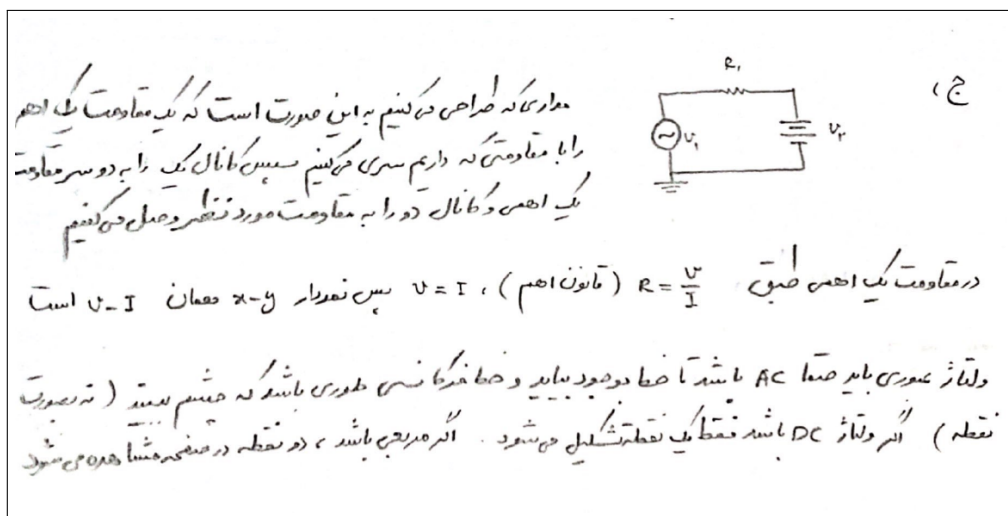 ج)
R₁
V₁
V₂
مداری که طراحی می‌کنیم به این صورت است که یک مقاومت یک اهم
را با مقاومتی که داریم سری می‌کنیم سپس کانال یک را به دو سر مقاومت
یک اهمی و کانال دو را به مقاومت مورد نظر وصل می‌کنیم
در مقاومت یک اهمی طبق R = V/I (قانون اهم) ، V = I پس نمودار x-y همان V-I است
ولتاژ عبوری باید حتما AC باشد تا خط بوجود بیاید و حتما فرکانسی طوری باشد که چشم ببیند ( نه بصورت
نقطه ) اگر ولتاژ DC باشد فقط یک نقطه تشکیل می‌شود . اگر مربعی باشد ، دو نقطه در صفحه مشاهده می‌شود